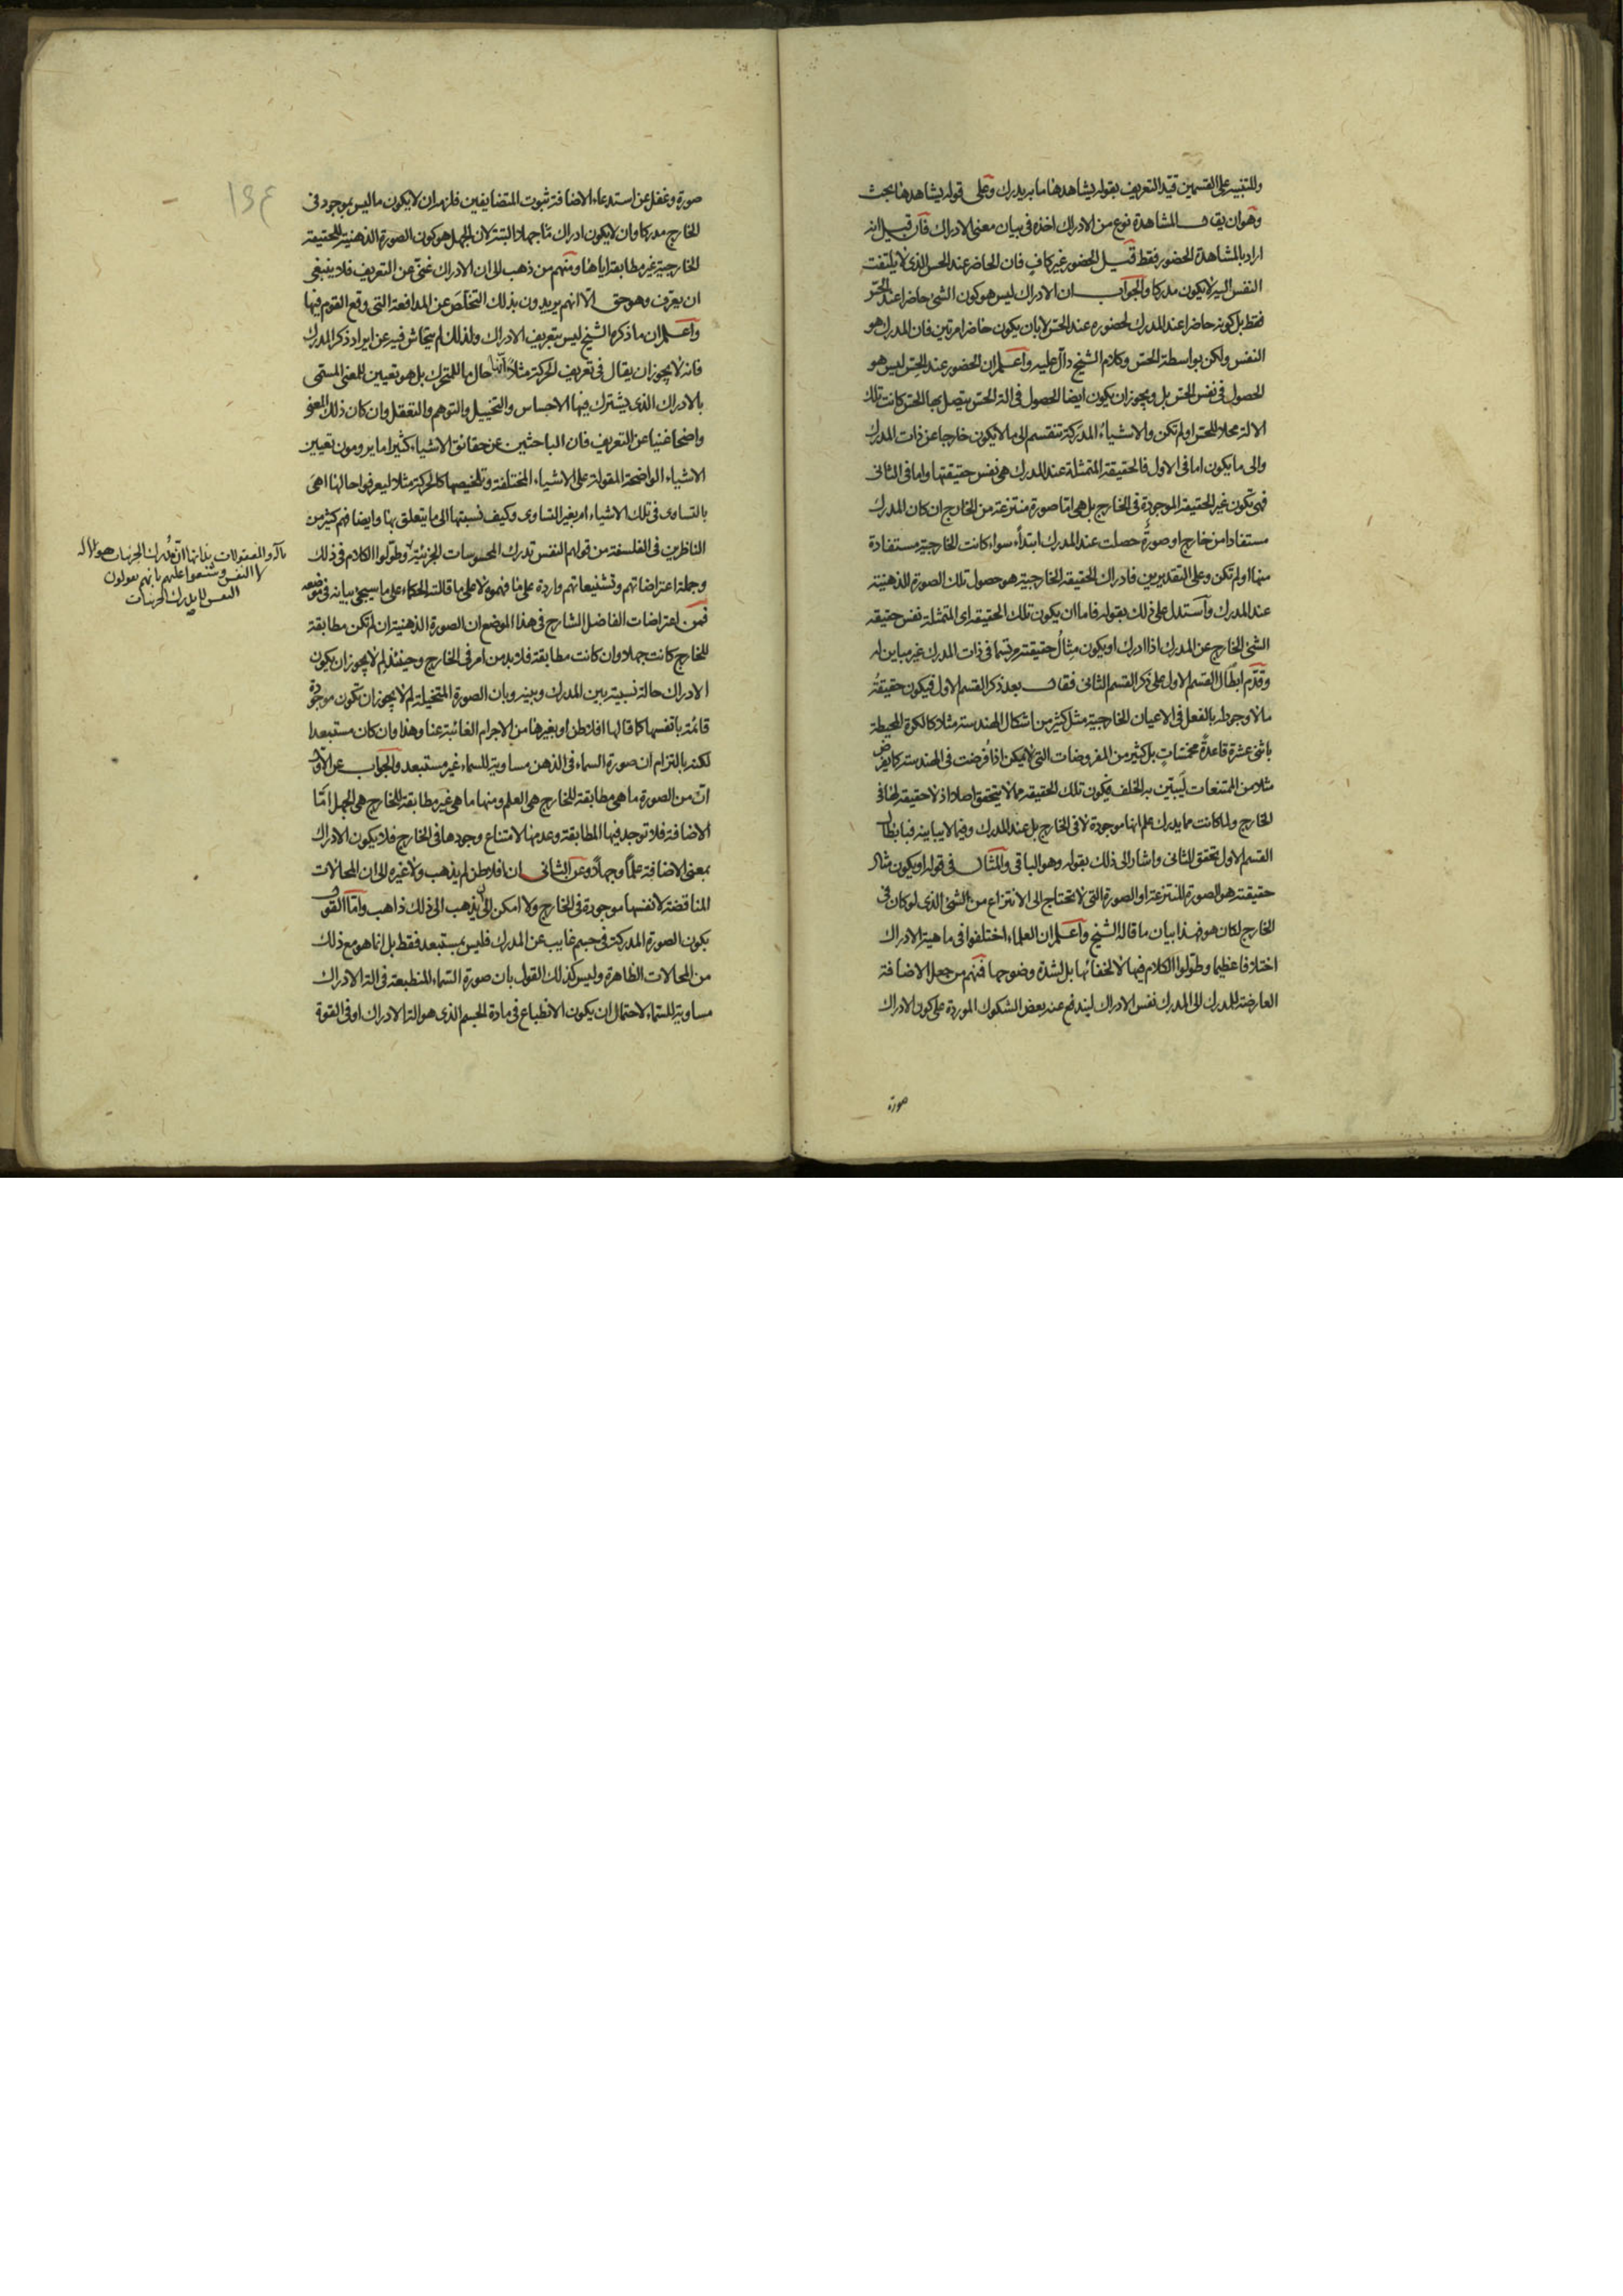 وللتنبيه على القسمين قيد التعريف بقوله يشاهدها ما به يدرك وعلى قوله يشاهدها بحث
وهو ان يقال المشاهدة نوع من الادراك اخذه فى بيان معنى الادراك فان قيل انه
اراد بالمشاهدة الحضور فقط قيل الحضور غير كاف فان الحاضر عند الحس الذى لا يلتفت
النفس اليه لا يكون مدركا والجواب ان الادراك ليس هو كون الشئ حاضرا عند الحس
فقط بل كونه حاضرا عند المدرك لحضوره عند الحس لا بان يكون حاضرا مرتين فان المدرك هو
النفس ولكن بواسطة الحس وكلام الشيخ دال عليه واعلم ان الحضور عند الحس ليس هو
الحصول فى نفس الحس بل ويجوز ان يكون ايضا الحصول فى الة الحس يتصل بها الحس كانت تلك
الالة محلا للحس او لم تكن والاشياء المدركة تنقسم الى ما لا يكون خارجا عن ذات المدرك
والى ما يكون اما فى الاول فالحقيقة المتمثلة عند المدرك هى نفس حقيقتها واما فى الثانى
فهى تكون غير الحقيقة الموجودة فى الخارج بل هى اما صورة منتزعة من الخارج ان كان المدرك
مستفادا من خارج او صورة حصلت عند المدرك ابتداء سواء كانت الخارجية مستفادة
منها او لم تكن وعلى التقديرين فادراك الحقيقة الخارجية هو حصول تلك الصورة الذهنية
عند المدرك واستدل على ذلك بقوله فاما ان يكون تلك الحقيقة اى المتمثلة نفس حقيقة
الشئ الخارج عن المدرك اذا ادرك او يكون مثال حقيقته مرتسما فى ذات المدرك غير مباين له
وقدم ابطال القسم الاول على ذكر القسم الثانى فقال بعد ذكر القسم الاول فيكون حقيقة
ما لا وجود له بالفعل فى الاعيان الخارجية مثل كثير من اشكال الهندسة مثلا كالكرة المحيطة
باثنى عشرة قاعدة مخمسات بل كثير من المفروضات التى لا يمكن اذا فرضت فى الهندسة كما يفرض
مثلا من الممتنعات ليبين به الخلف فيكون تلك الحقيقة مما لا يتحقق اصلا اذ لا حقيقة لها فى
الخارج ولما كانت مما يدرك علم انها موجودة لا فى الخارج بل عند المدرك وفيما لا يباينه فبابطال
القسم الاول تحقق الثانى واشار الى ذلك بقوله وهو الباقى والمثال فى قوله او يكون مثال
حقيقته هو الصورة المنتزعة او الصورة التى لا تحتاج الى الانتزاع من الشئ الذى لو كان فى
الخارج لكان هو فهذا بيان ما قاله الشيخ واعلم ان العلماء اختلفوا فى ماهية الادراك
اختلافا عظيما وطولوا الكلام فيها لا لخفائها بل لشدة وضوحها فمنهم من جعل الاضافة
العارضة للمدرك الى المدرك نفس الادراك ليندفع عنه بعض الشكوك الموردة على كون الادراك
صورة
صورة وغفل عن استدعاء الاضافة ثبوت المتضايفين فلزمه ان لا يكون ما ليس بموجود فى
الخارج مدركا وان لا يكون ادراك ما جهلا البتة لان الجهل هو كون الصورة الذهنية للحقيقة
الخارجية غير مطابقة اياها ومنهم من ذهب الى ان الادراك غنى عن التعريف فلا ينبغى
ان يعرف وهو حق الا انهم يريدون بذلك التخلص عن المدافعة التى وقع القوم فيها
واعلم ان ما ذكره الشيخ ليس بتعريف الادراك ولذلك لم يتحاش فيه عن ايراد ذكر المدرك
فانه لا يجوز ان يقال فى تعريف الحركة مثلا انها حال ما للمتحرك بل هو تعيين للمعنى المسمى
بالادراك الذى يشترك فيها الاحساس والتخييل والتوهم والتعقل وان كان ذلك المعنى
واضحا غنيا عن التعريف فان الباحثين عن حقائق الاشياء كثيرا ما يرومون تعيين
الاشياء الواضحة المقولة على الاشياء المختلفة وتلخيصها كالحركة مثلا ليعرفوا حالها اهى
بالتساوى فى تلك الاشياء ام بغير التساوى وكيف نسبتها الى ما يتعلق بها وايضا فهم كثير من
الناظرين فى الفلسفة من قولهم النفس تدرك المحسوسات الجزئية وطولوا الكلام فى ذلك
وجملة اعتراضاتهم وتشنيعاتهم واردة على ما فهموه لا على ما قالته الحكماء على ما سيجئ بيانه فى موضعه
فمن اعتراضات الفاضل الشارح فى هذا الموضع ان الصورة الذهنية ان لم تكن مطابقة
للخارج كانت جهلا وان كانت مطابقة فلا بد من امر فى الخارج وحينئذ لم لا يجوز ان يكون
الادراك حالة نسبية بين المدرك وبينه وبان الصورة المتخيلة لم لا يجوز ان تكون موجودة
قائمة بانفسها كما قالها افلاطن او بغيرها من الاجرام الغائبة عنا وهذا وان كان مستبعدا
لكنه بالتزام ان صورة السماء فى الذهن مساوية للسماء غير مستبعد والجواب عن الاول
ان من الصورة ما هى مطابقة للخارج هى العلم ومنها ما هى غير مطابقة للخارج هى الجهل اما
الاضافة فلا توجد فيها المطابقة وعدمها لامتناع وجودها فى الخارج فلا يكون الادراك
بمعنى الاضافة علما وجهلا وعن الثانى ان افلاطن لم يذهب ولا غيره الى ان المحالات
المناقضة لانفسها موجودة فى الخارج ولا امكن ان يذهب الى ذلك ذاهب واما القول
بكون الصورة المدركة فى جسم غايب عن المدرك فليس بمستبعد فقط بل انما هو مع ذلك
من المحالات الظاهرة وليس كذلك القول بان صورة السماء المنطبعة فى الة الادراك
مساوية للسماء لاحتمال ان يكون الانطباع فى مادة الجسم الذى هو الة الادراك او فى القوة
والمعقولات بذاتها ان مدرك الجزئيات هو الالة
لا النفس وشنعوا عليهم بانهم يقولون
النفس لا يدرك الجزئيات